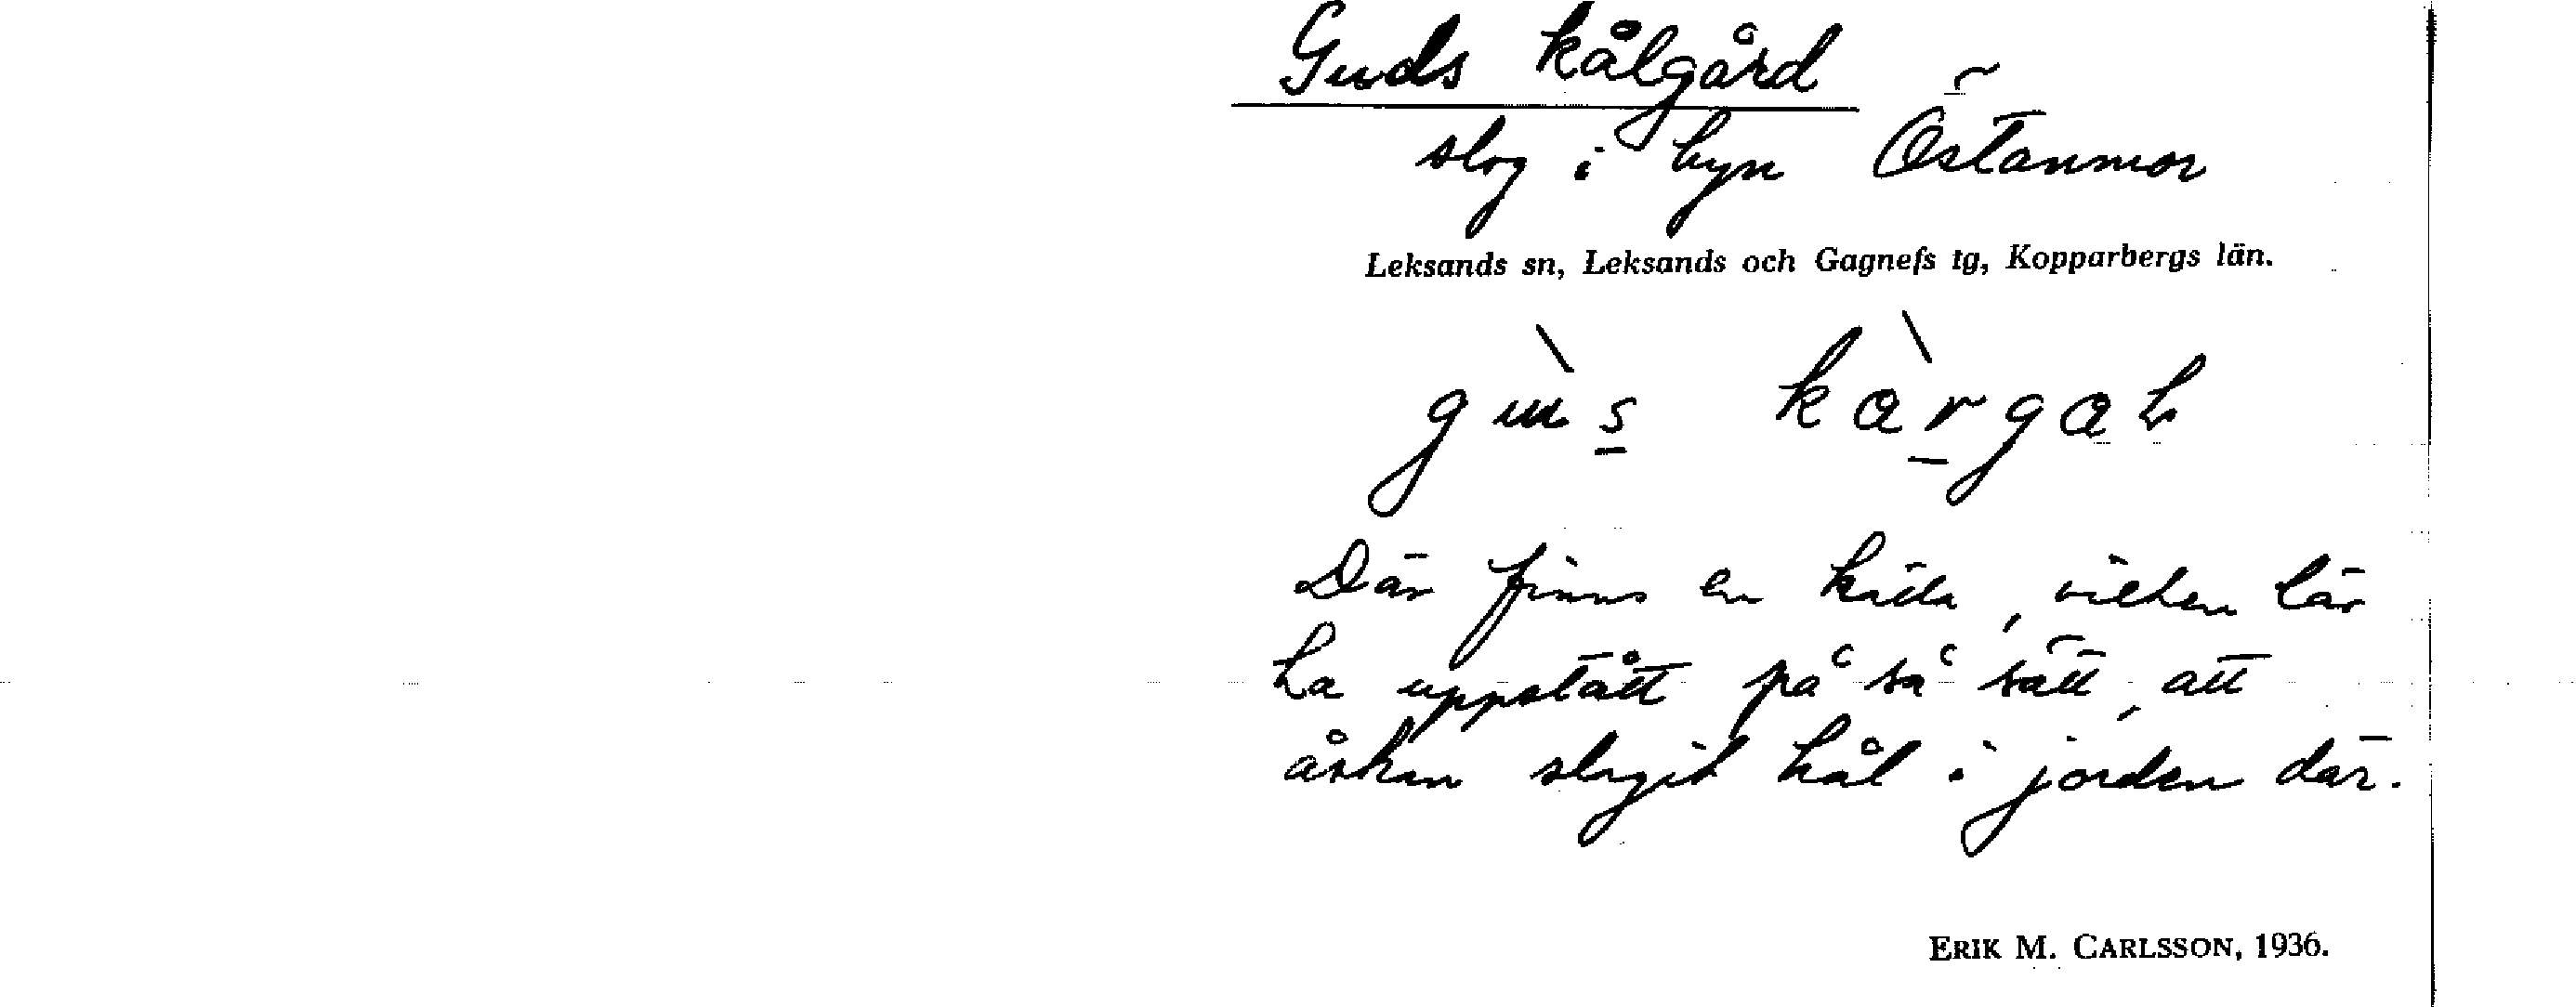 Guds kålgård
slog i byn Östanmor
Leksands sn, Leksands och Gagnefs tg, Kopparbergs län.
Där finns en källa, vilken lär
ha uppstått på så sätt, att
åskan slagit hål i jorden där.
ERIK M. CARLSSON, 1936.